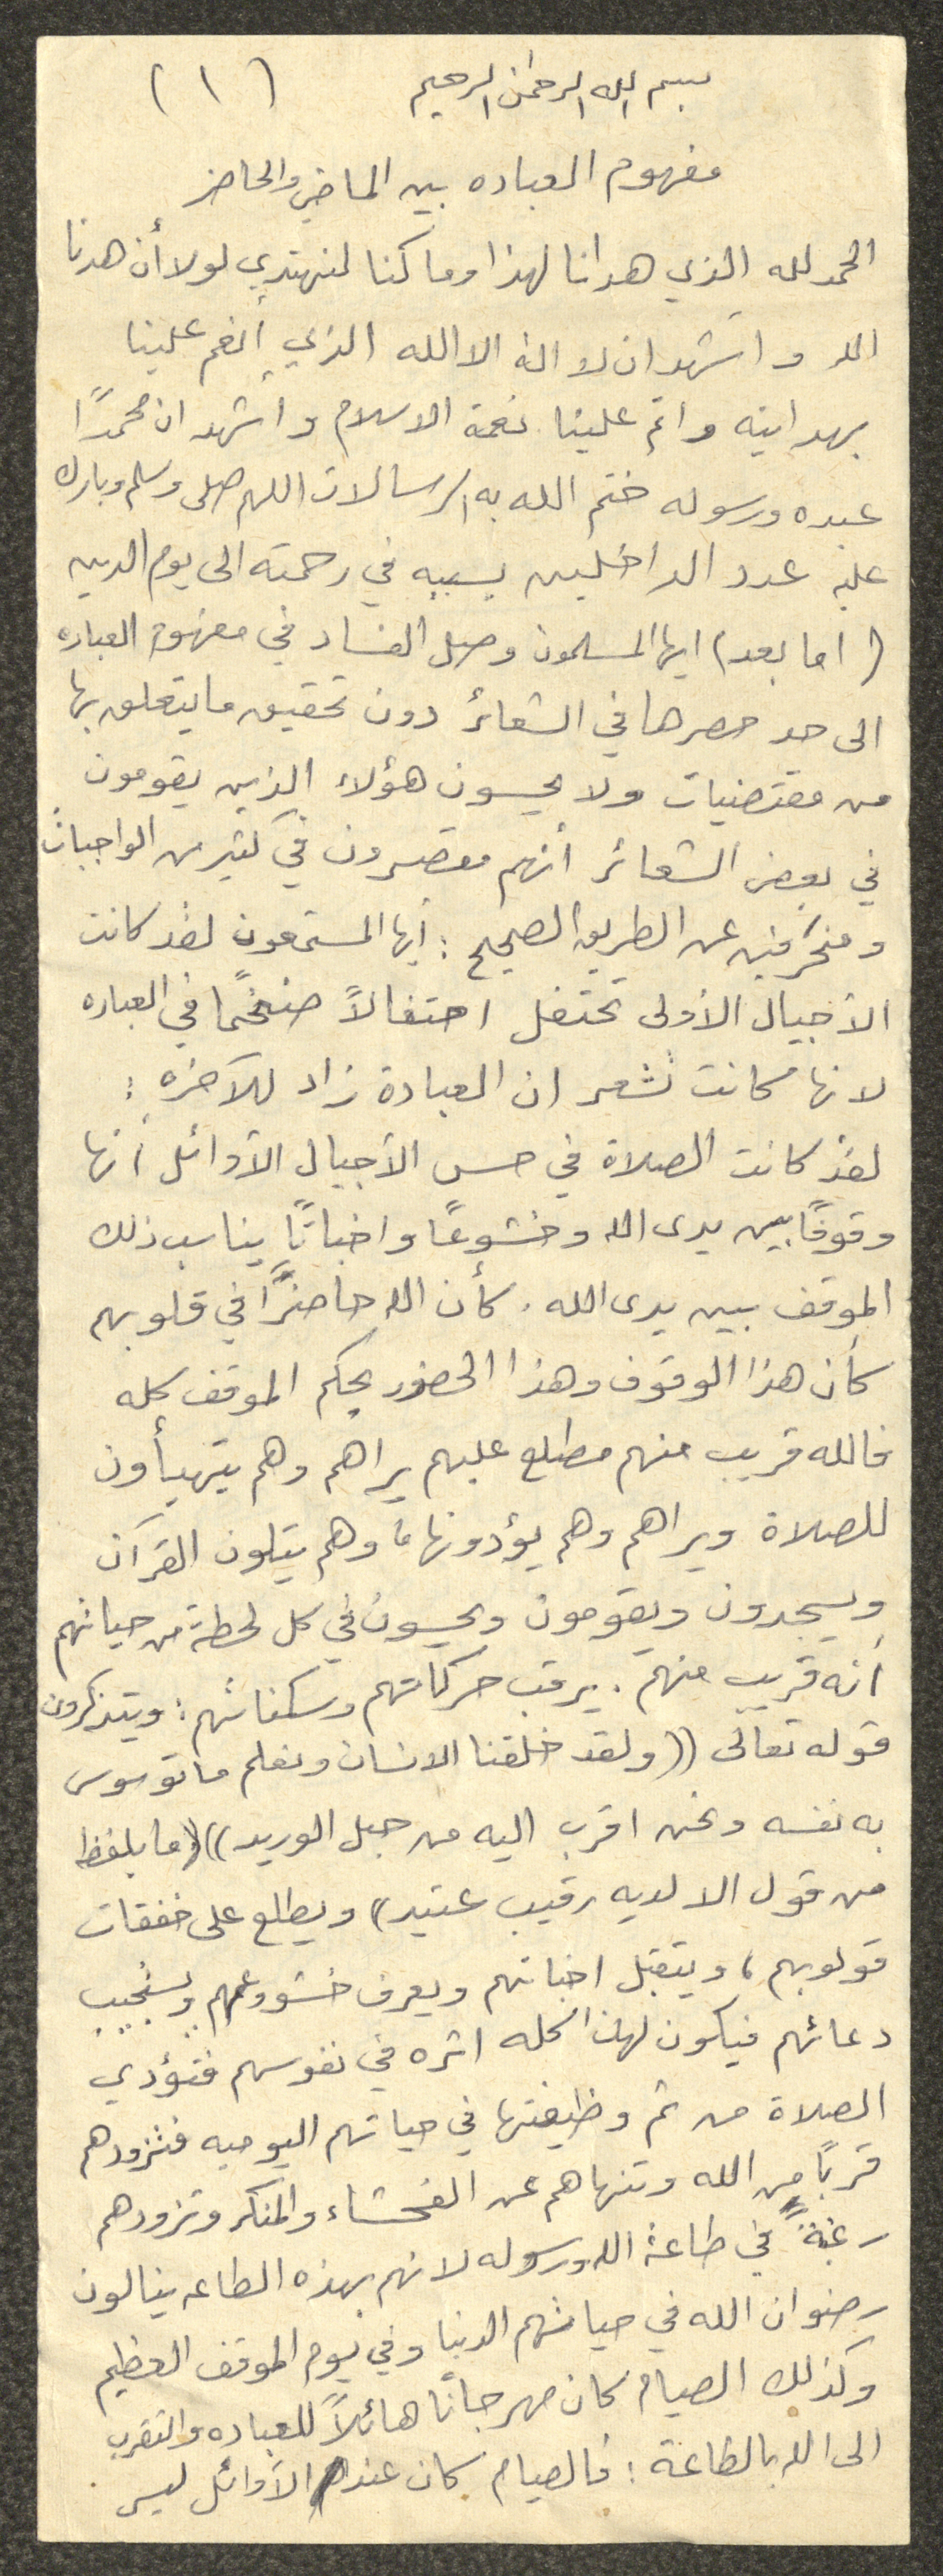 بسم الله الرحمن الرحيم (١)
مفهوم العباده بين الماضي والحاضر
الحمد لله الذي هدانا لهذا وما كنا لنهتدي لولا أن هدنا
الله واشهد ان لا اله الا الله الذي أنعم علينا
بهدايته واتم علينا نعمة الاسلام واشهد ان محمدًا
عبده ورسوله ختم الله به الرسالات اللهم صلى وسلم وبارك
عليه عدد الداخلين بسببه في رحمته الى يوم الدين
(اما بعد) ايها المسلمون وصل الفساد في مفهوم العباده
الى حد حصرها في الشعائر دون تحقيق ما يتعلق بها
من مقتضيات ولا يحسون هؤلاء الذين يقومون
في بعض الشعائر أنهم مقصرون في كثير من الواجبات
ومنحرفين عن الطريق الصحيح : أيها المستمعون لقد كانت
الأجيال الأولى تحتفل احتفالاً ضخمًا في العباده
لانها كانت تشعر ان العبادة زاد للآخره :
لقد كانت الصلاة في حس الأجيال الأوائل أنها
وقوفًا بين يدى الله وخشوعًا واخباتًا يناسب ذلك
الموقف بين يدى الله . كأن الله حاضرًا في قلوبهم
كأن هذا الوقوف وهذا الحضور يحكم الموقف كله
فالله قريب منهم مطلع عليهم يراهم وهم يتهيأون
للصلاة ويراهم وهم يؤدونها ، وهم يتلون القرآن
ويسجدون ويقومون ويحسون في كل لحظة من حياتهم
أنه قريب منهم . يرقب حركاتهم وسكناتهم : ويتذكرون
قوله تعالى ((ولقد خلقنا الانسان ونعلم ما توسوس
به نفسه ونحن اقرب اليه من حبل الوريد)) (ما يلفظ
من قول الا لديه رقيب عتيد) ويطلع على خفقات
قولوبهم ، ويتقبل اخباتهم ويعرف خشووعهم ويستجيب
دعائهم فيكون لهذا كله اثره في نفوسهم فتؤدي
الصلاة من ثم وظيفتها في حياتهم اليوميه فتزودهم
قربًا من الله وتنهاهم عن الفحشاء والمنكر وتزودهم
رغبةً في طاعة الله ورسوله لانهم بهذه الطاعه ينالون
رضوان الله في حياتهم الدنيا وفي يوم الموقف العظيم
وكذلك الصيام كان مهرجانًا هائلاً للعباده والتقرب
الى الله بالطاعة : فالصيام كان عند الأوائل ليس